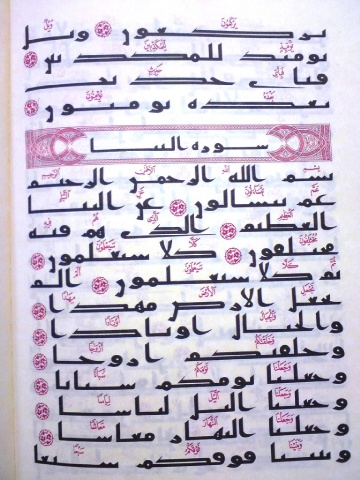 يركعون ۝ ويل
يومئذ للمكذبين ۝
فبأي حديث
بعده يؤمنون ۝
سورة النبا
بسم الله الرحمن الرحيم
عم يتساءلون ۝ عن النبا
العظيم ۝ الذي هم فيه
مختلفون ۝ كلا سيعلمون ۝
ثم كلا سيعلمون ۝ الم
نجعل الارض مهدا ۝
والجبال اوتادا ۝
وخلقنكم ازوجا ۝
وجعلنا نومكم سباتا ۝
وجعلنا اليل لباسا ۝
وجعلنا النهار معاشا ۝
وبنينا فوقكم سبعا